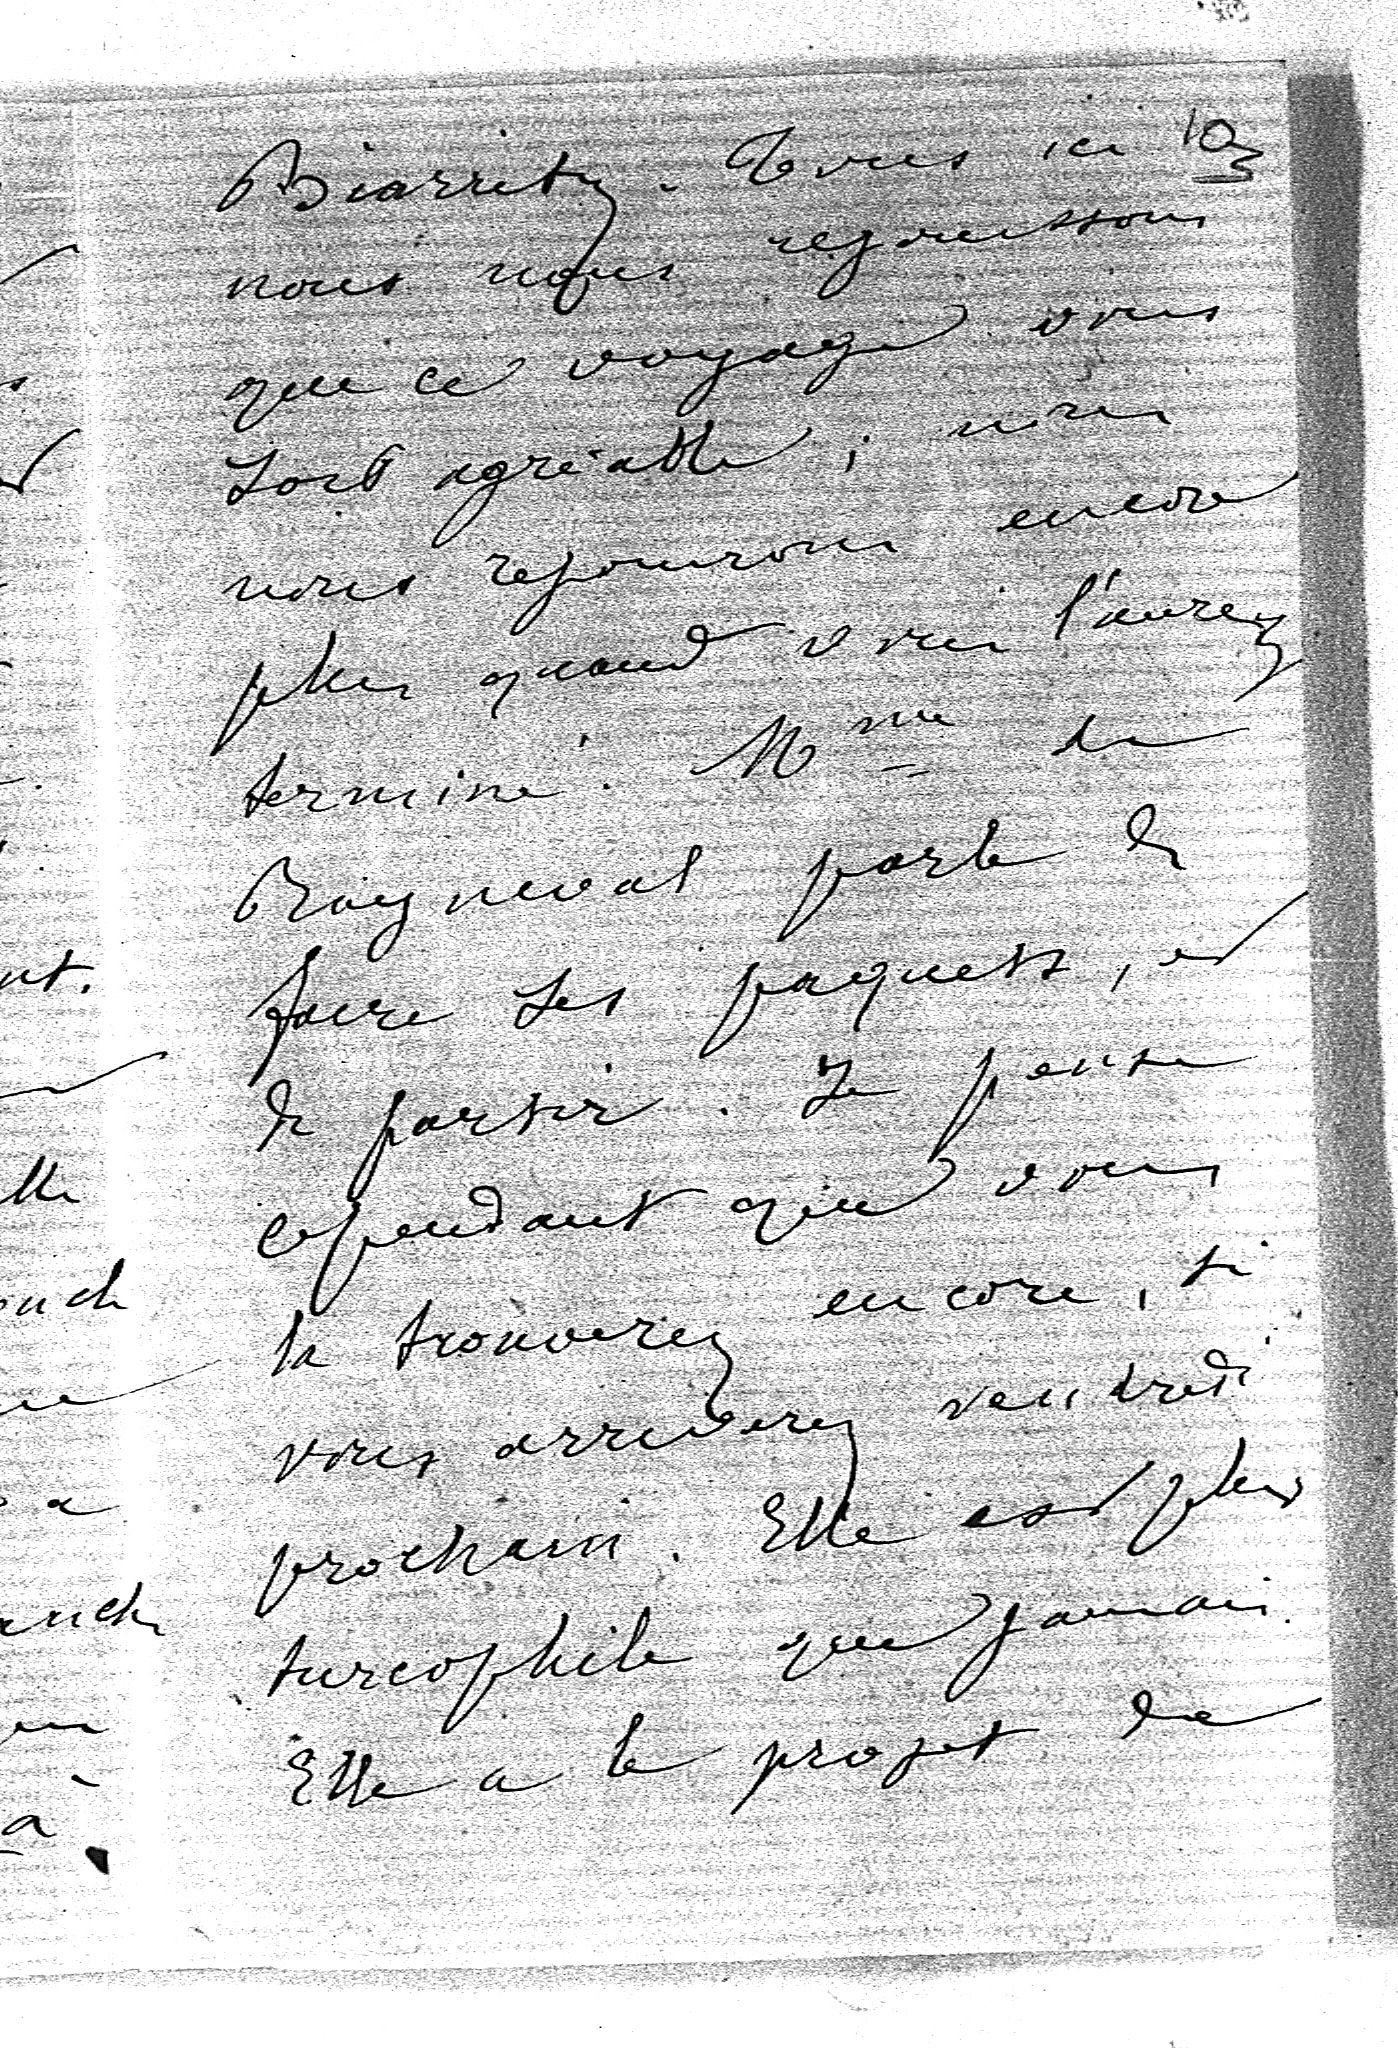 Biarritz. Tous ici
nous nous rejouissons
que ce voyage vous
soit agréable ; nous
nous rejouirons encore
plus quand vous l'aurez
terminé. Mme de
Rayneval parle de
faire ses paquets, et
de partir. Je pense
cependant que vous
la trouverez encore, si
vous arriverez vendredi
prochain. Elle est plus
turcophile que jamais.
Elle a le projet de